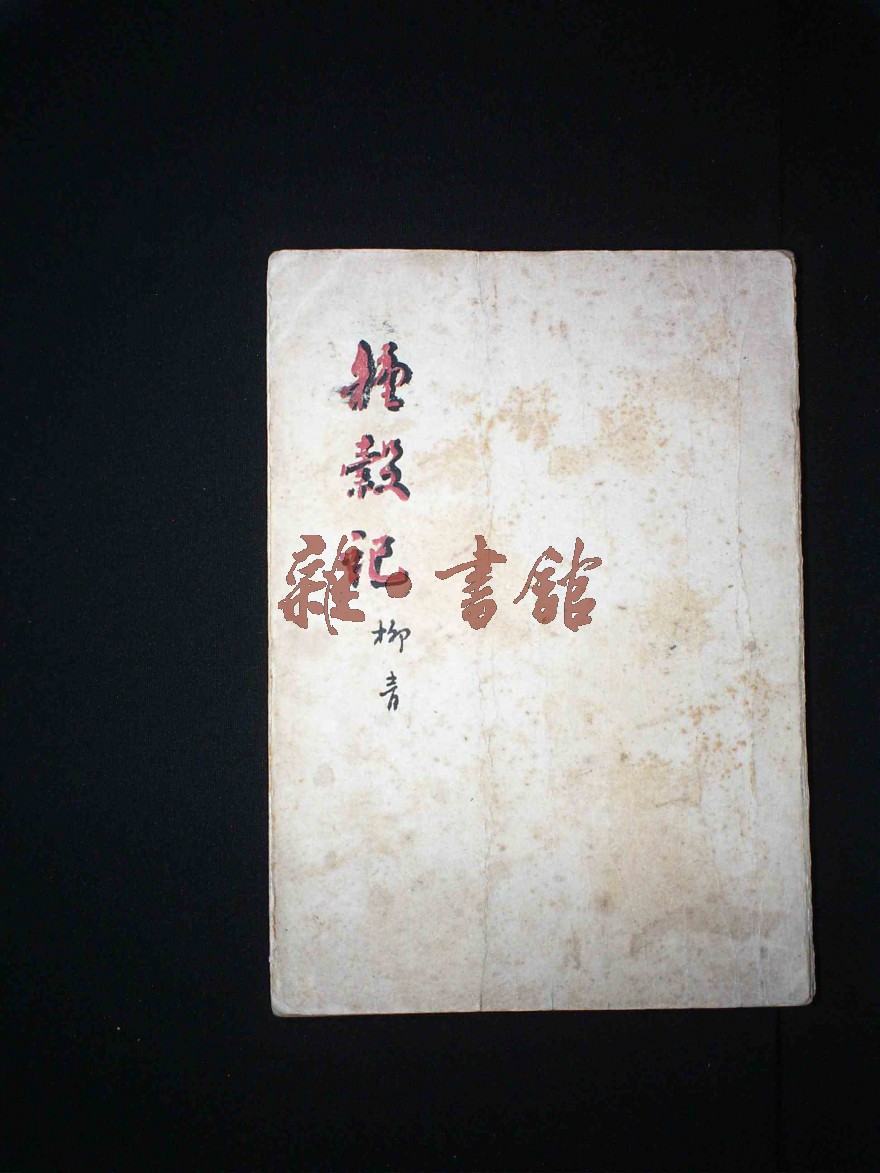 種穀記
柳青
雜書館